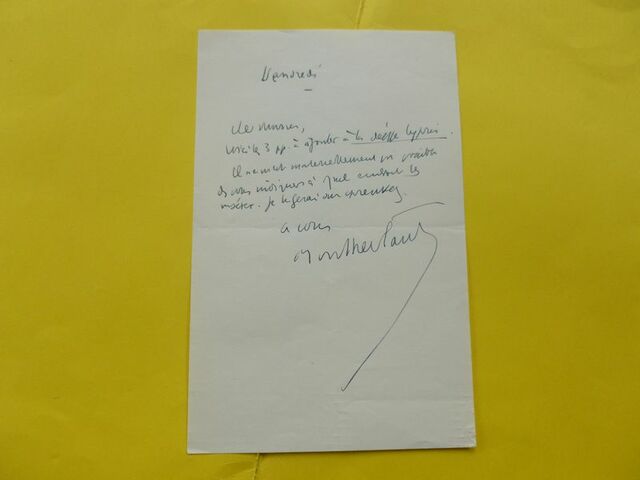 Vendredi
Cher Monsieur,
Voici les 3 pp. à ajouter à La déesse Cypris.
Il ne m'est matériellement pas possible
de vous indiquer à quel endroit les
insérer. Je le ferai sur épreuves.
à vous
Montherlant